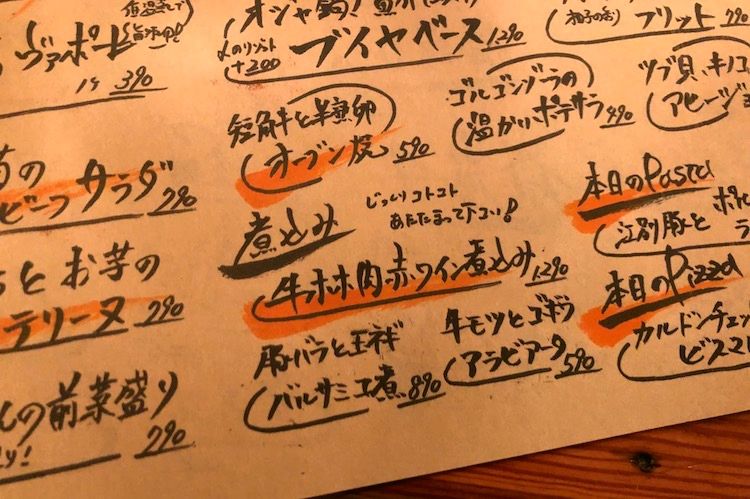 ヴァポーレ
390
のサラダ
290
とお芋の
テリーヌ 290
の前菜盛り
290
ブイヤベース 1,290
〆のリゾット
+200
短角牛と半熟卵
オーブン焼 590
煮込み
じっくりコトコト
あたたまって下さい!
牛ホホ肉赤ワイン煮込み 1,290
豚バラと玉ネギ
バルサミコ煮 890
牛モツとゴボウ
アラビアータ 590
フリット 790
ゴルゴンゾーラの
温かいポテサラ 490
ツブ貝、キノコ
アヒージョ
本日のPasta
江別豚と
本日のPizza
カルドンチェッ
ビスマル